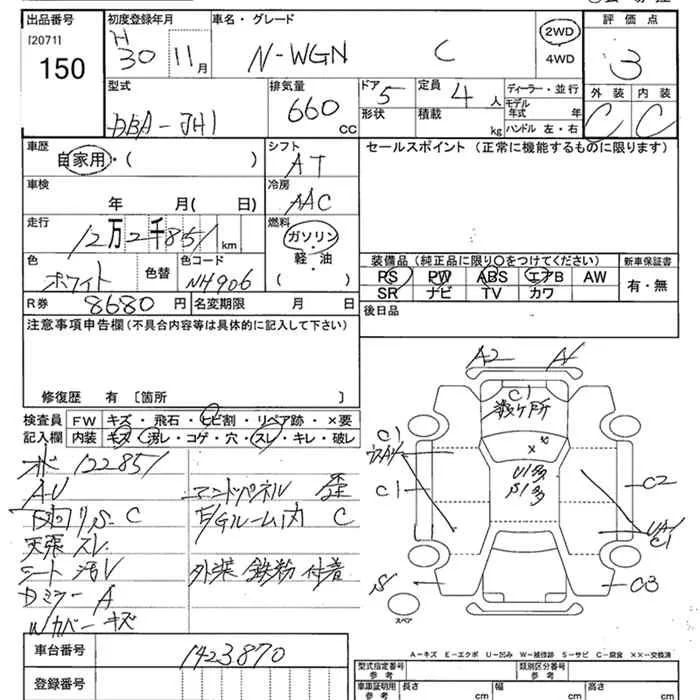 出品番号 初度登録年月 車名・グレード 評価点
[2071] H 30 11月 N-WGN C 2WD 3
150 4WD
外装 内装
型式 排気量 ドア 5 定員 4人 ディーラー・並行
形状 積載 kg モデル年式 年
DBA-JH1 660 CC ハンドル 左・右 C C
車歴 シフト セールスポイント(正常に機能するものに限ります)
自家用・( ) AT
車検 冷房
年 月( 日) AAC
走行 燃料
12万2千851km ガソリン
軽・油
( )
色 色替 色コード 装備品(純正品に限り○をつけてください) 新車保証書
ホワイト NH906 PS PW ABS エアB AW 有・無
SR ナビ TV カワ
R券 8680円 名変期限 月 日 後日品
注意事項申告欄(不具合内容等は具体的に記入して下さい)
修復歴 有〔箇所 〕
検査員 FW キズ・飛石・ヒビ割・リペア跡・×要
記入欄 内装 キズ・汚レ・コゲ・穴・スレ・キレ・破レ
122851
AU エンドパネル 歪
S C F/Gルーム内 C
天張 スレ
シート 汚V 外装 鉄粉 付着
Dミラー A
Wカバー キズ
A2 A1
C1
数ヶ所
C1
C1 U1多 C2
S1多
UA1
C1
S1 C3
スペア
A-キズ E-エクボ U-凹み W-補修跡 S-サビ C-腐食 ××-交換済
車台番号 1423870
型式指定番号 参考 類別区分番号 参考
登録番号 車庫証明用 参考 長さ cm 幅 cm 高さ cm